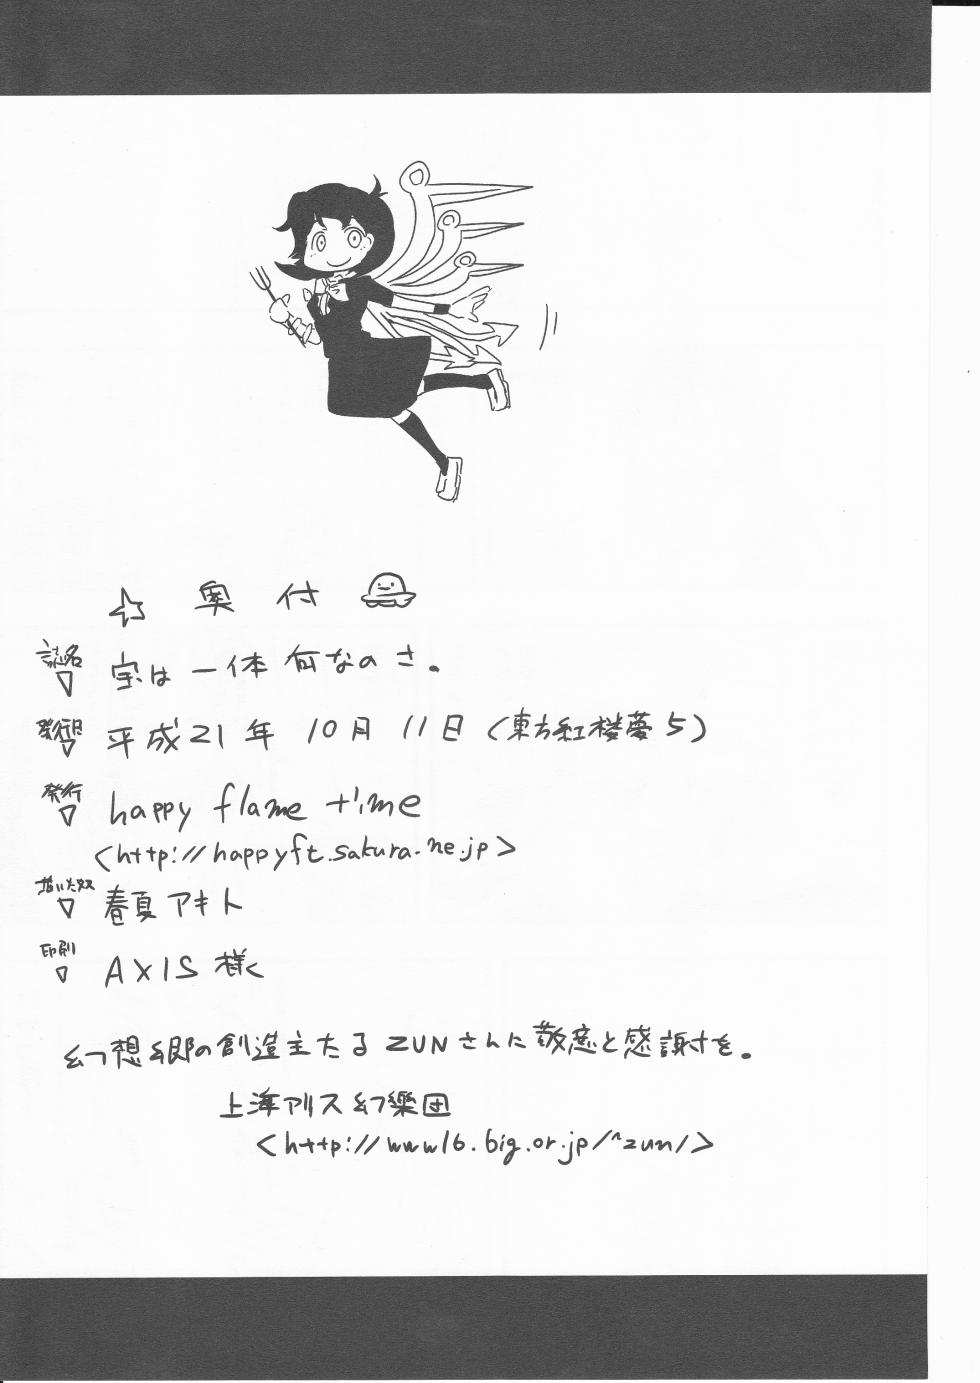 奥付
誌名
宝は一体何なのさ。
発行日
平成21年 10月 11日 (東方紅楼夢5)
発行
happy flame time
<http://happyft.sakura.ne.jp>
描いた奴
春夏アキト
印刷
AXIS 様
幻想郷の創造主たる ZUNさんに敬意と感謝を。
上海アリス幻樂団
<http://www16.big.or.jp/~zun/>